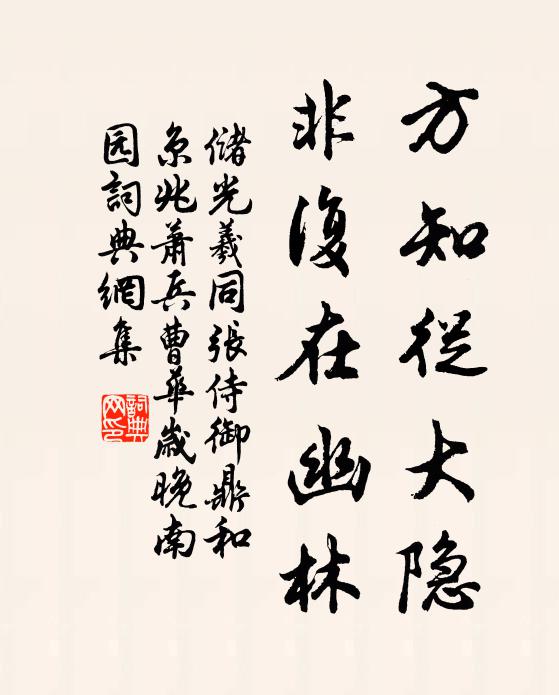 方知從大隐
非復在幽林
储光羲同張侍御鼎和
京兆蕭兵曹華歲晚南
园詞典網集
詞典
网印